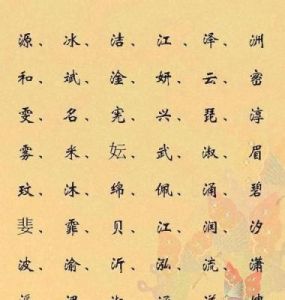 源、冰、洁、江、泽、洲
和、斌、淦、妍、云、密
雯、名、宪、兴、琵、淳
雾、米、妘、武、淑、眉
玟、沐、绵、佩、涌、碧
斐、霏、贝、江、润、汐
波、渝、沂、泓、流、潇